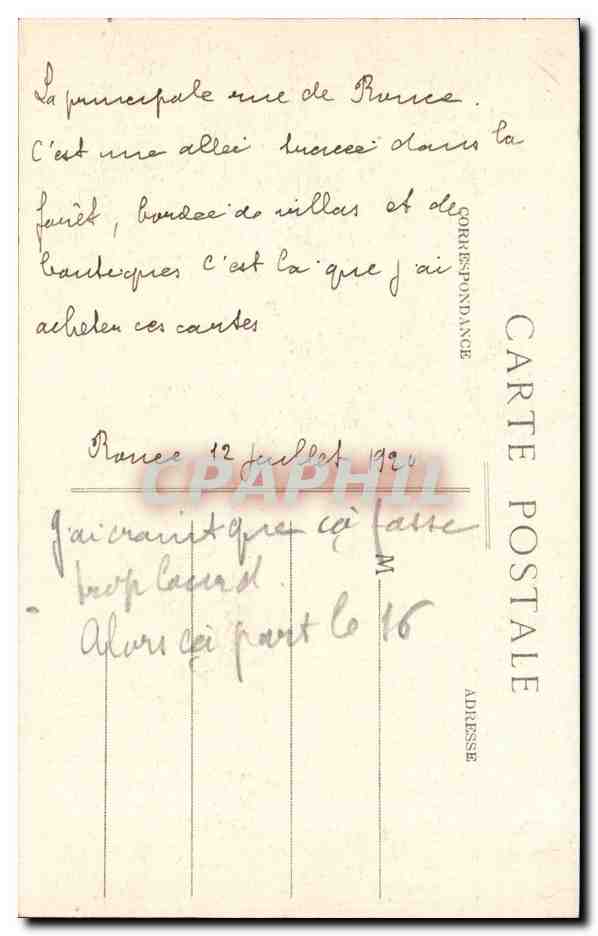 La principale rue de Ronce.
C'est une allei tracee dans la
forêt, bordée de villas et de
boutiques c'est la que j'ai
acheter ces cartes
Ronce 12 juillet 192
CPAPHIL
j'ai craint que cà fasse
trop lourd.
Alors cà part le 16
CORRESPONDANCE
CARTE POSTALE
M
ADRESSE